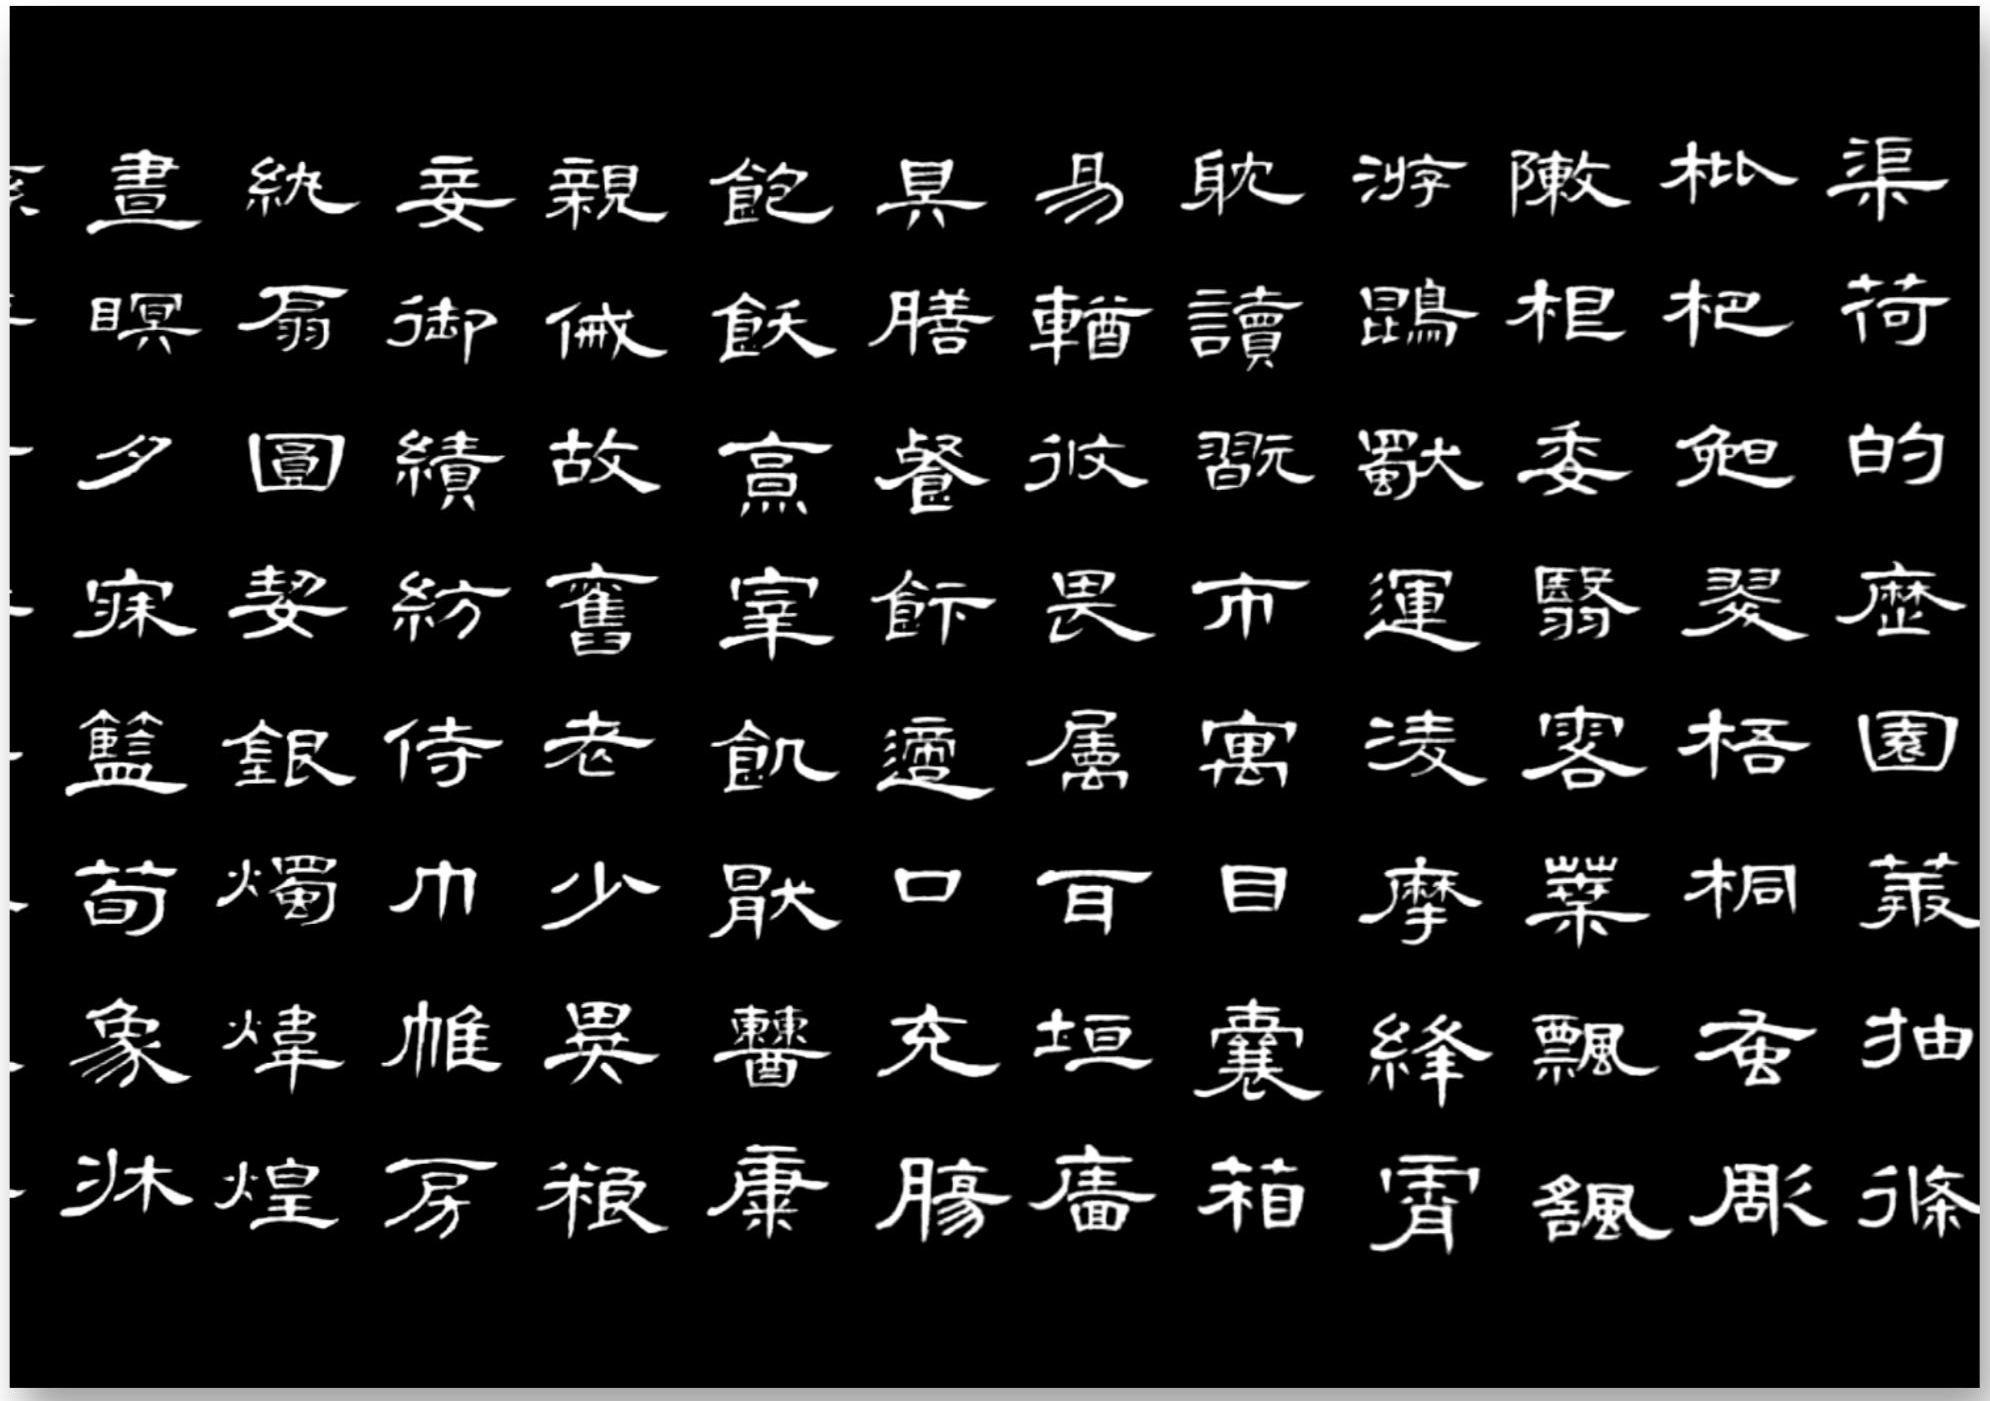 渠荷的歷園莽抽條
枇杷晚翠梧桐蚤彫
陳根委翳落葉飄颻
游鵾獨運凌摩絳霄
耽讀翫市寓目囊箱
易輶攸畏屬耳垣牆
具膳餐飯適口充腸
飽飫烹宰飢厭糟糠
親戚故舊老少異糧
妾御績紡侍巾帷房
紈扇圓潔銀燭煒煌
晝瞑夕寐籃筍象牀